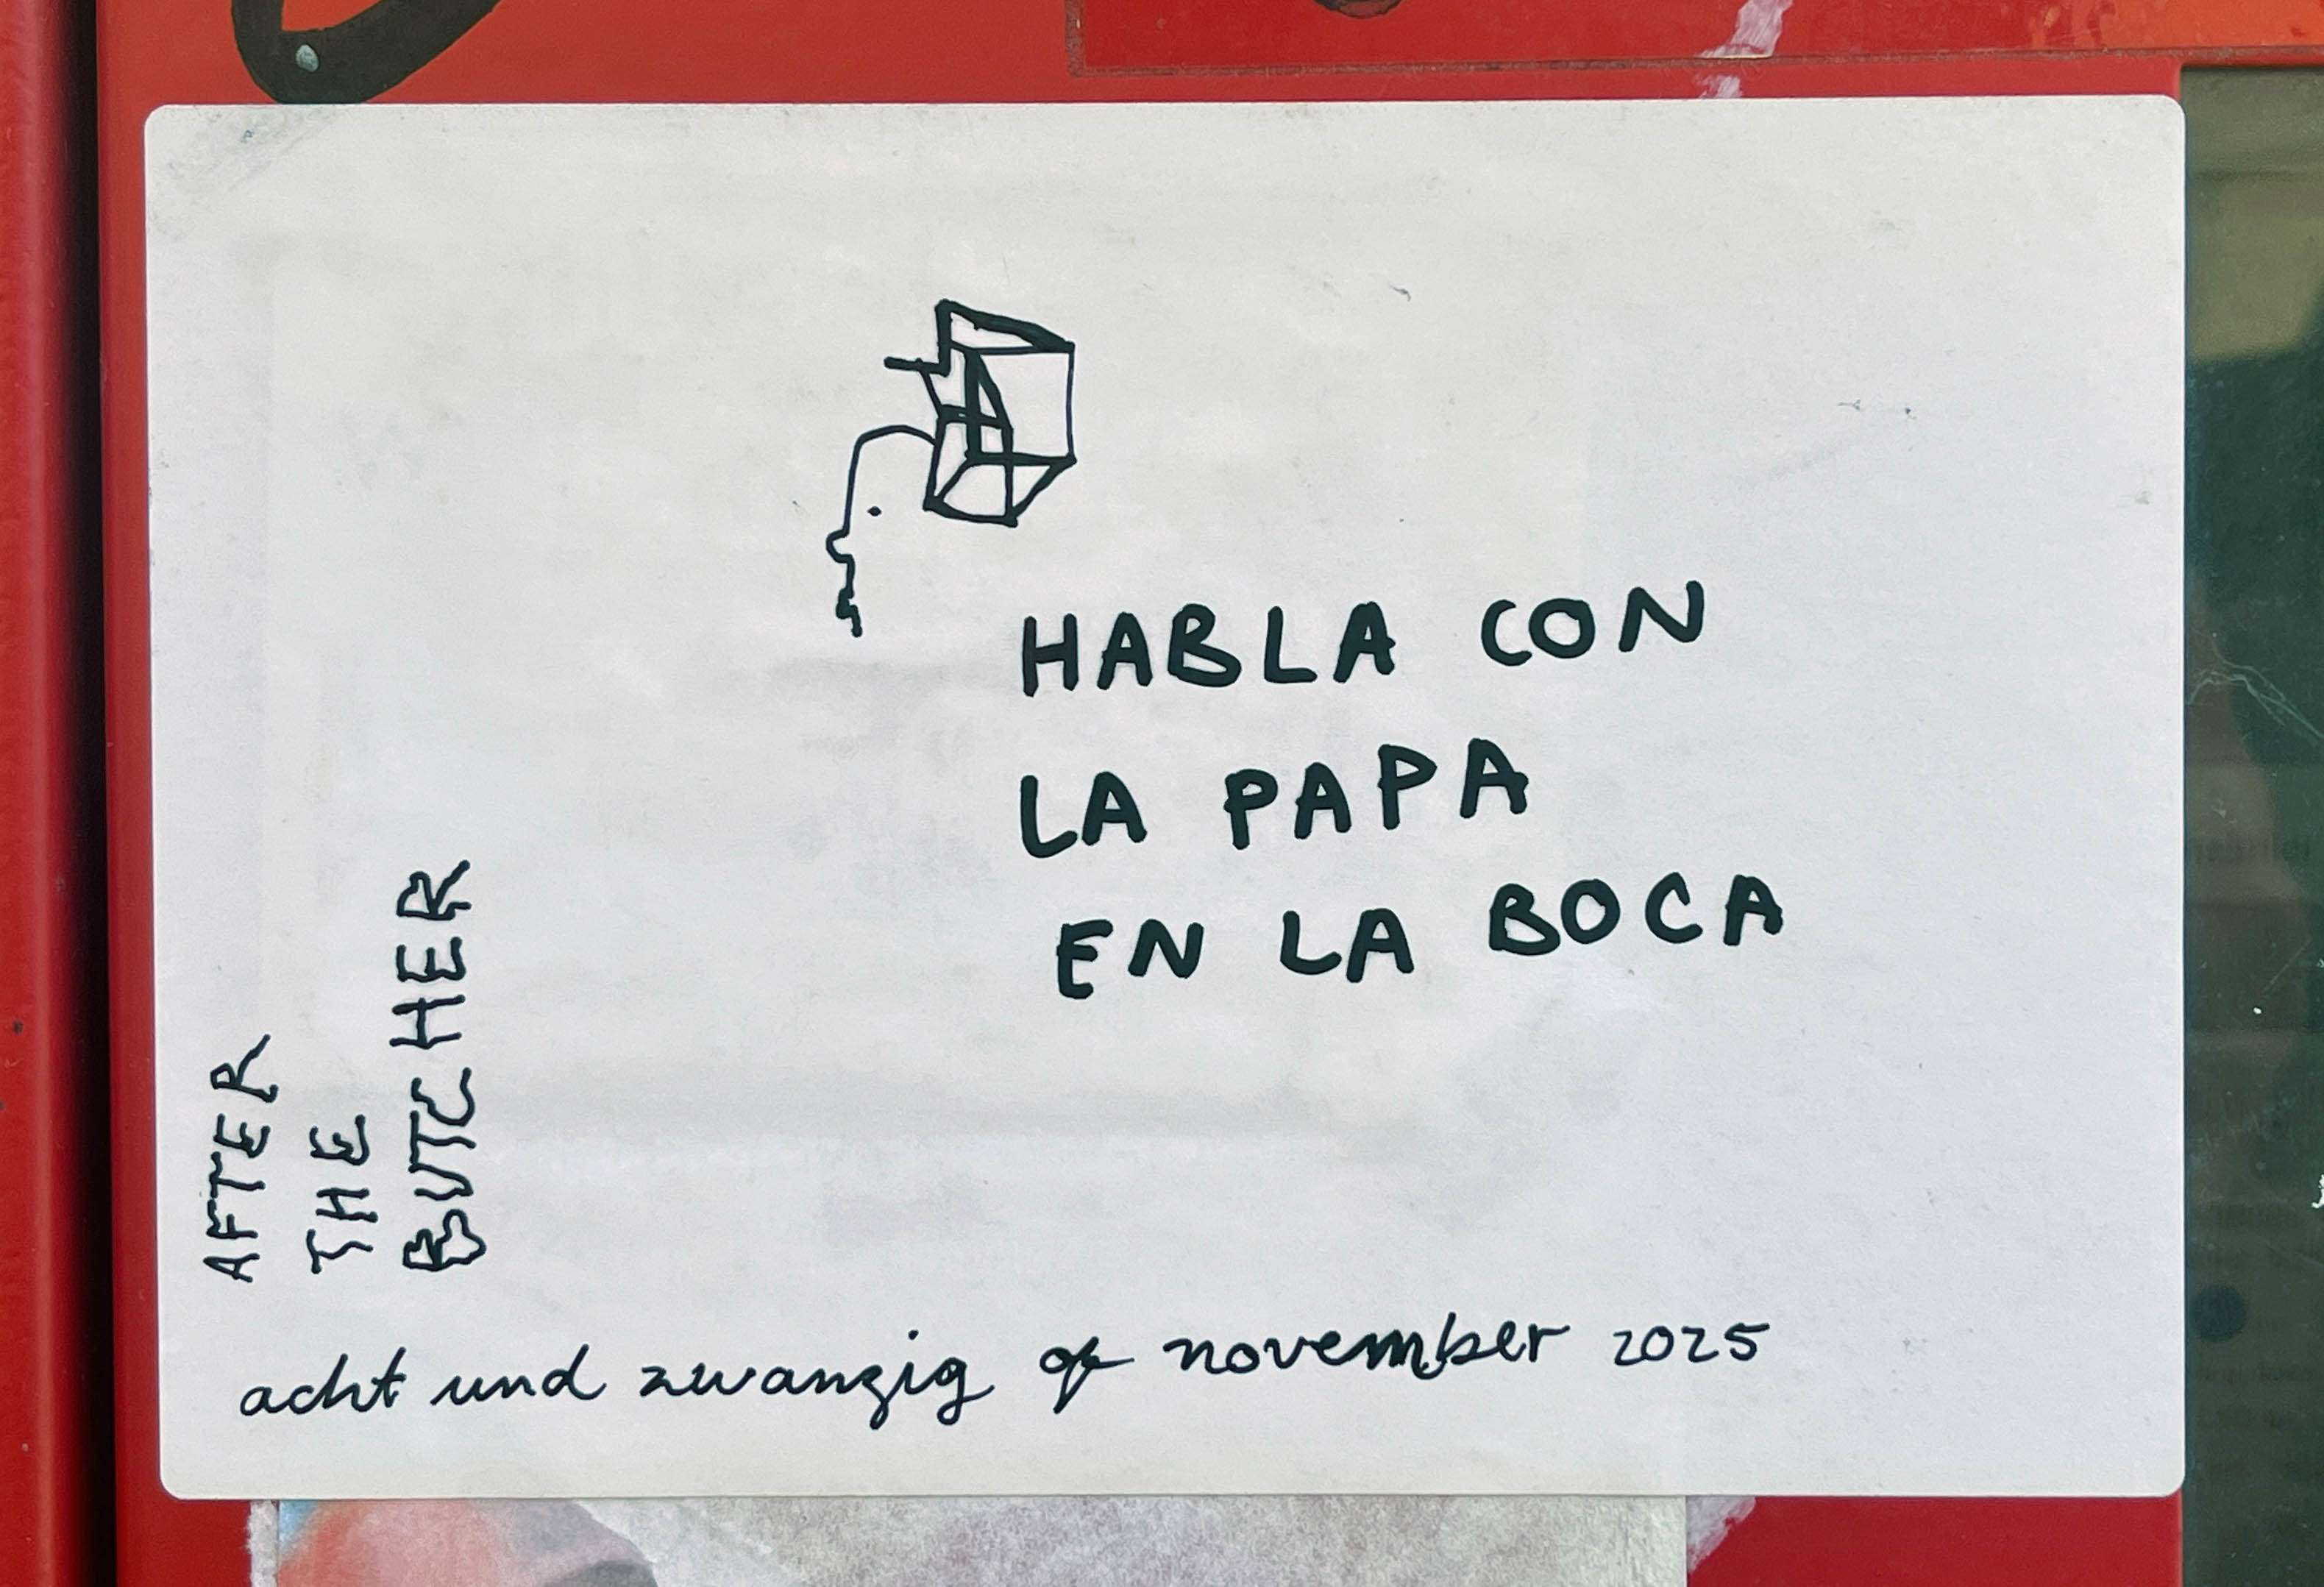 HABLA CON
LA PAPA
EN LA BOCA
AFTER
THE
BUTCHER
acht und zwanzig of november 2025